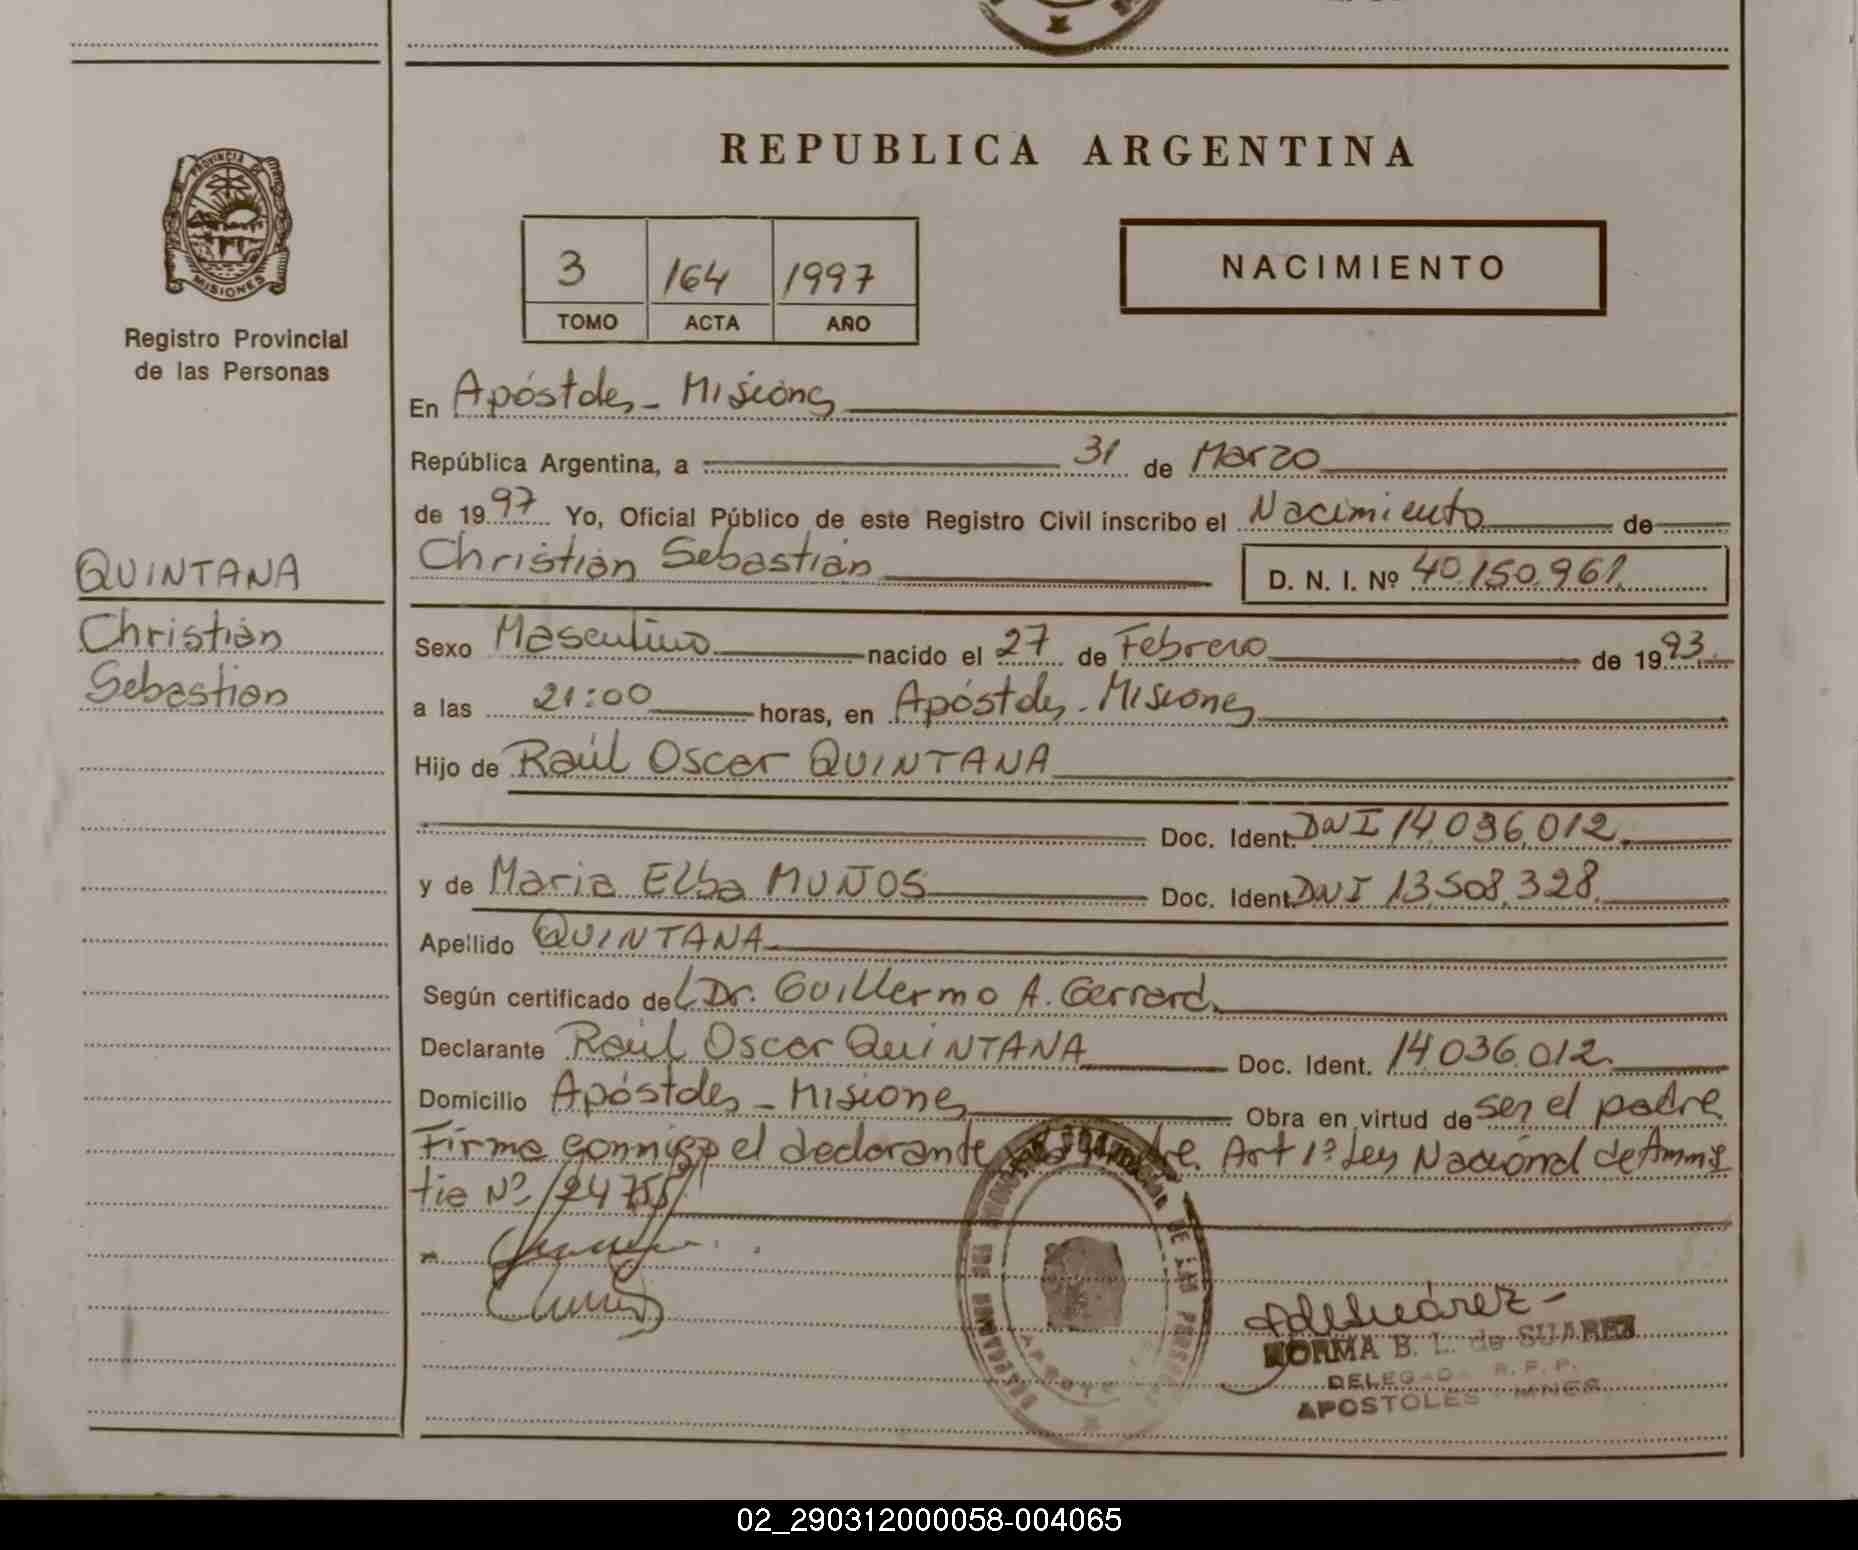 REPUBLICA ARGENTINA
PROVINCIA DE
MISIONES
Registro Provincial
de las Personas
3 164 1997
TOMO ACTA AÑO
NACIMIENTO
QUINTANA
Christián
Sebastián
En Apóstoles - Misiones
República Argentina, a 31 de Marzo
de 1997 Yo, Oficial Público de este Registro Civil inscribo el Nacimiento de
Christián Sebastián D. N. I. Nº 40.150.961.
Sexo Masculino nacido el 27 de Febrero de 1993.
a las 21:00 horas, en Apóstoles - Misiones
Hijo de Raúl Oscar QUINTANA
Doc. Ident. DNI 14.036.012.
y de Maria Elba MUÑOS Doc. Ident. DNI 13.508.328.
Apellido QUINTANA
Según certificado del Dr. Guillermo A. Gerrard.
Declarante Raúl Oscar QUINTANA Doc. Ident. 14.036.012.
Domicilio Apóstoles - Misiones Obra en virtud de ser el padre
Firma conmigo el declarante Art 1º Ley Nacional de Amnis
tia Nº 24755
NORMA B. L. de SUAREZ
DELEGADA R.P.P.
APOSTOLES MNES
02_290312000058-004065